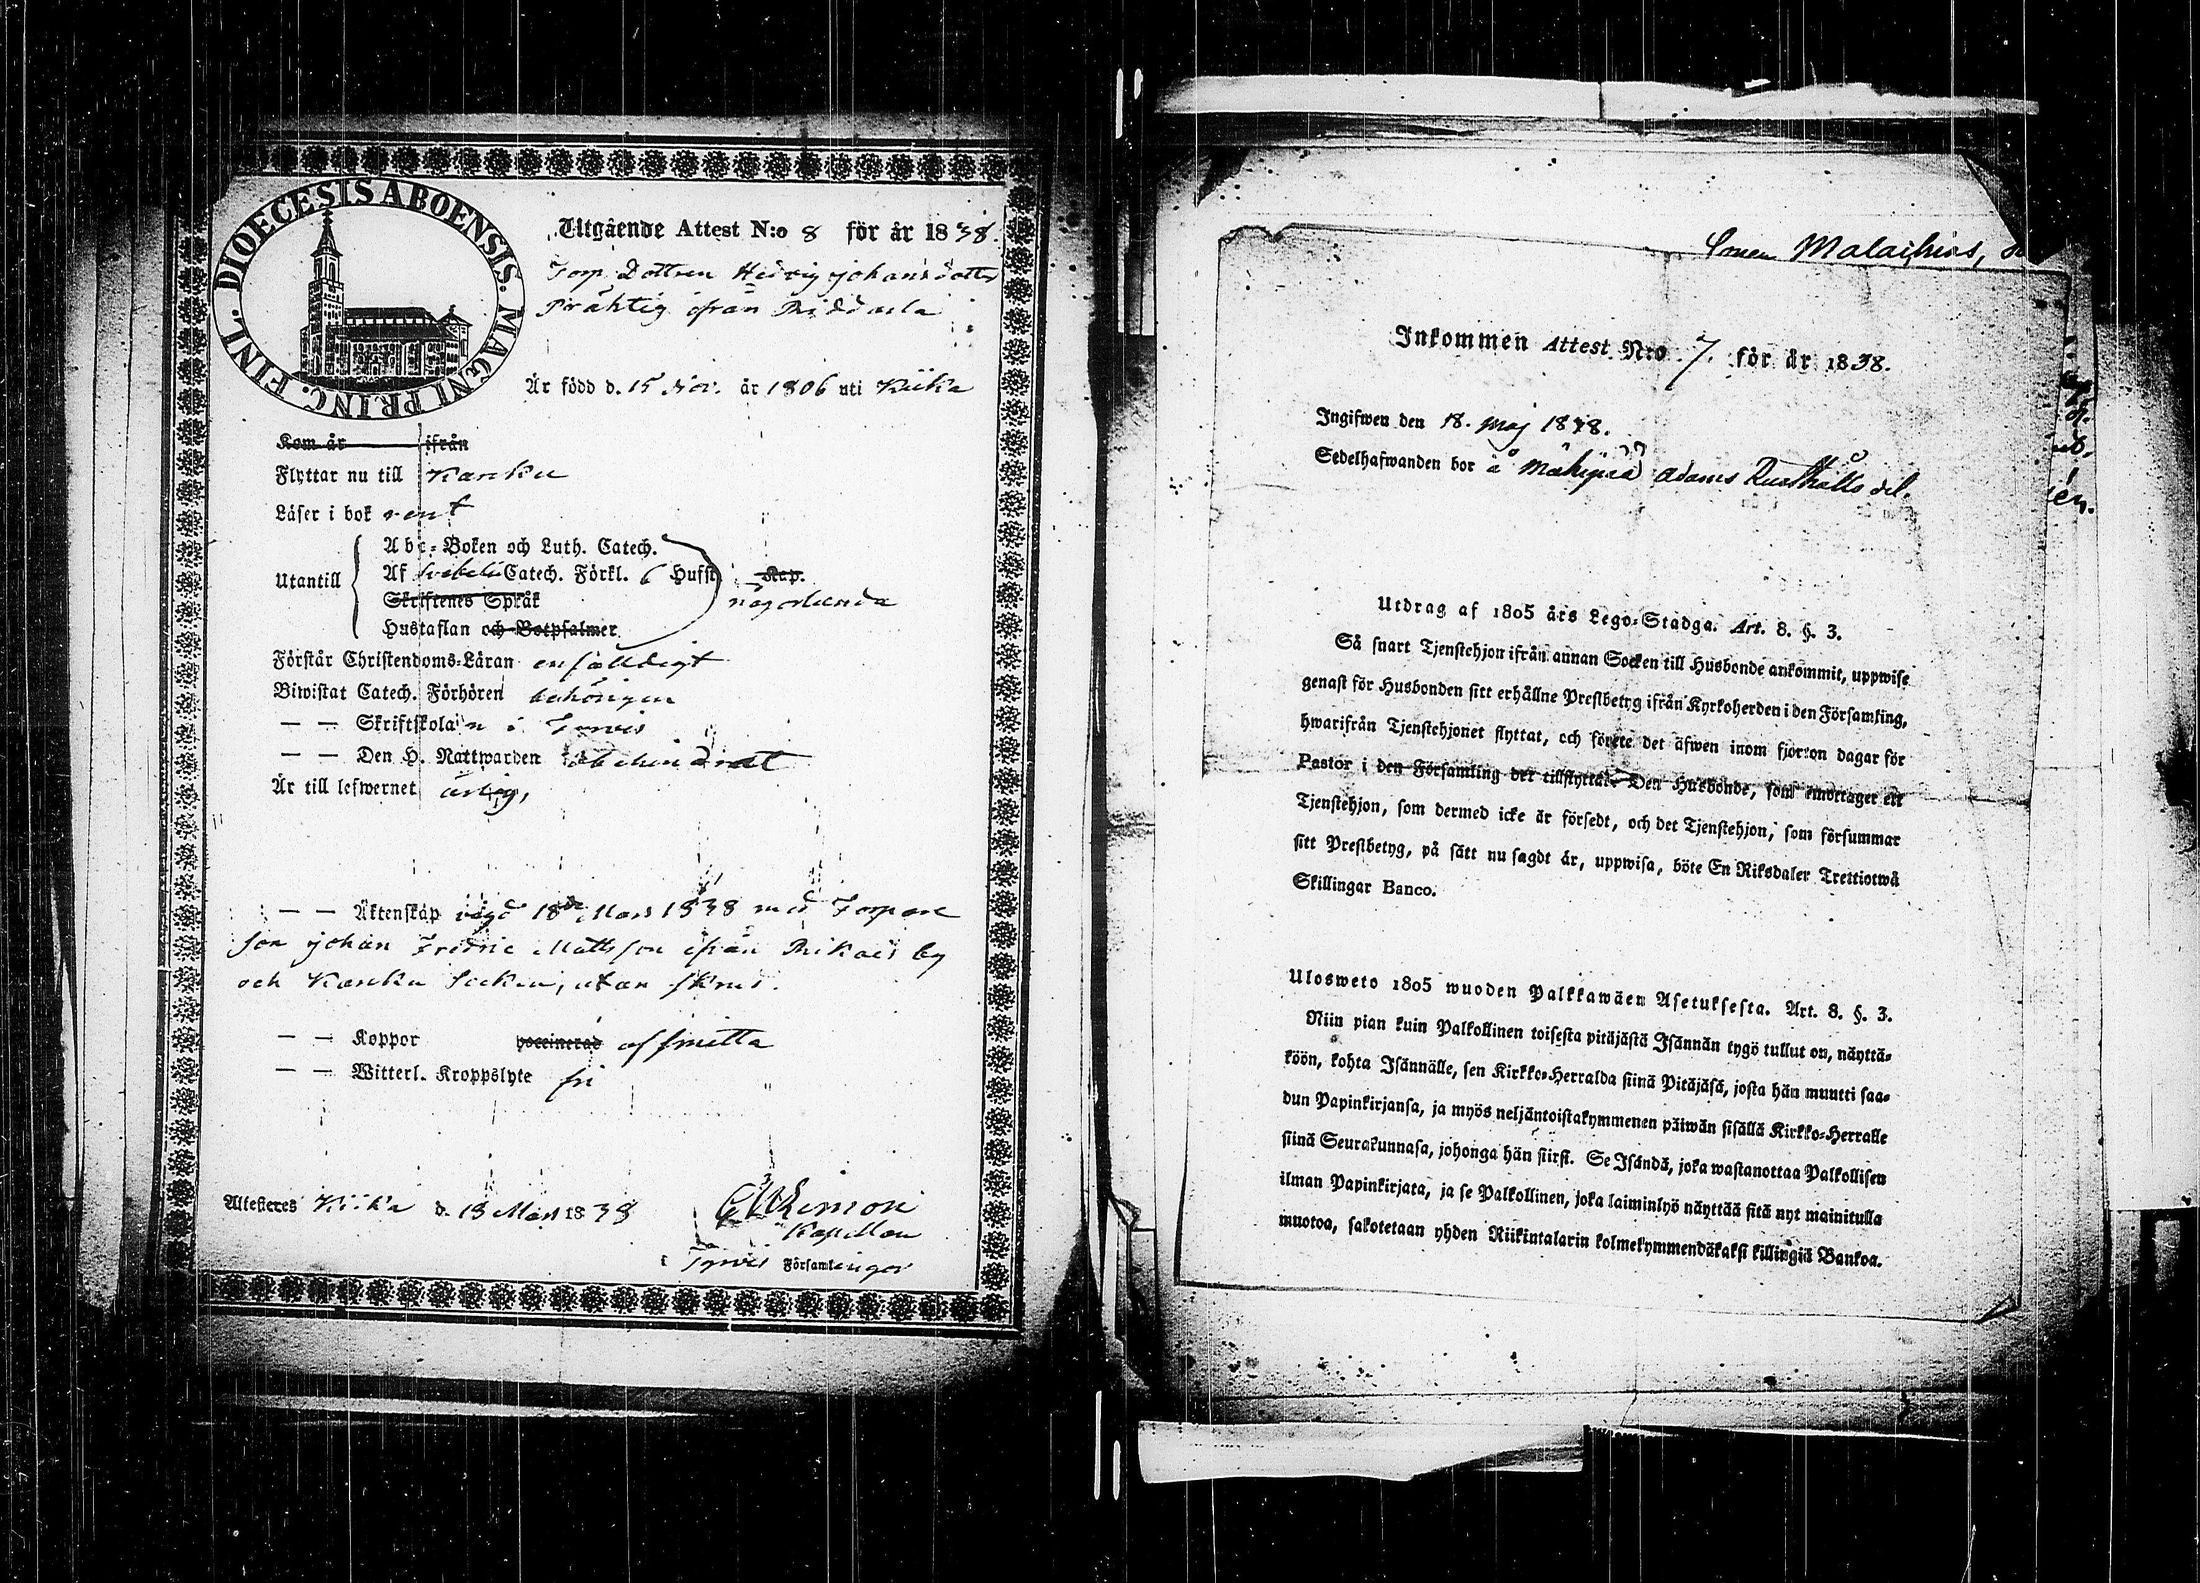 DIOECESIS ABOENSIS. MAGNI PRINC. FINL.
Utgående Attest N:o 8 för år 1838.
Torp Dottren Hedvig Johansdotter
Präktig ifrån Riddala
Är född d. 15 Nov. år 1806 uti Kiika
Kom år ifrån
Flyttar nu till Kanku
Läser i bok rent
Utantill
Abc-Boken och Luth. Catech.
Af Svebelii Catech. Förkl. 6 Hufst. Kap.
Skriftenes Språk
någorlunda
Hustaflan och Botpsalmer
Förstår Christendoms-Läran enfälldigt
Biwistat Catech. Förhören behörigen
— — Skriftskolan i Tyrvis
— — Den H. Nattwarden obehindrat
Är till lefwernet ärlig,
— — Äktenskap vigd 18de Mars 1838 med Torpare
Son Johan Fredric Mattsson ifrån Rikais by
och Kanku Socken, utan skrud.
— — Koppor vaccinerad af smitta
— — Witterl. Kroppslyte fri
Attesteres Kiika d. 18 Mars 1838
Kapellan
i Tyrvis Församlingar
Malachias,
Inkommen Attest N:o 7. för år 1838.
Ingifwen den 18. Maj 1838.
Sedelhafwanden bor å Mähipää Adams Rusthålls del.
Utdrag af 1805 års Lego-Stadga. Art. 8. §. 3.
Så snart Tjenstehjon ifrån annan Socken till Husbonde ankommit, uppwise
genast för Husbonden sitt erhållne Prestbetyg ifrån Kyrkoherden i den Församling,
hwarifrån Tjenstehjonet flyttat, och förete det äfwen inom fjorton dagar för
Pastor i den Församling det tillflyttat. Den Husbonde, som emottager ett
Tjenstehjon, som dermed icke är försedt, och det Tjenstehjon, som försummar
sitt Prestbetyg, på sätt nu sagdt är, uppwisa, böte En Riksdaler Trettiotwå
Skillingar Banco.
Ulosweto 1805 wuoden Palkkawäen Asetuksesta. Art. 8. §. 3.
Niin pian kuin Palkollinen toisesta pitäjästä Isännän tygö tullut on, näyttä-
köön, kohta Isännälle, sen Kirkko-Herralda siinä Pitäjäsä, josta hän muutti saa-
dun Papinkirjansa, ja myös neljäntoistakymmenen päiwän sisällä Kirkko-Herralle
siinä Seurakunnasa, johonga hän siirst. Se Isändä, joka wastanottaa Palkollisen
ilman Papinkirjata, ja se Palkollinen, joka laiminlyö näyttää sitä nyt mainitulla
muotoa, sakotetaan yhden Riikintalarin kolmekymmendäkaksi killingiä Bankoa.